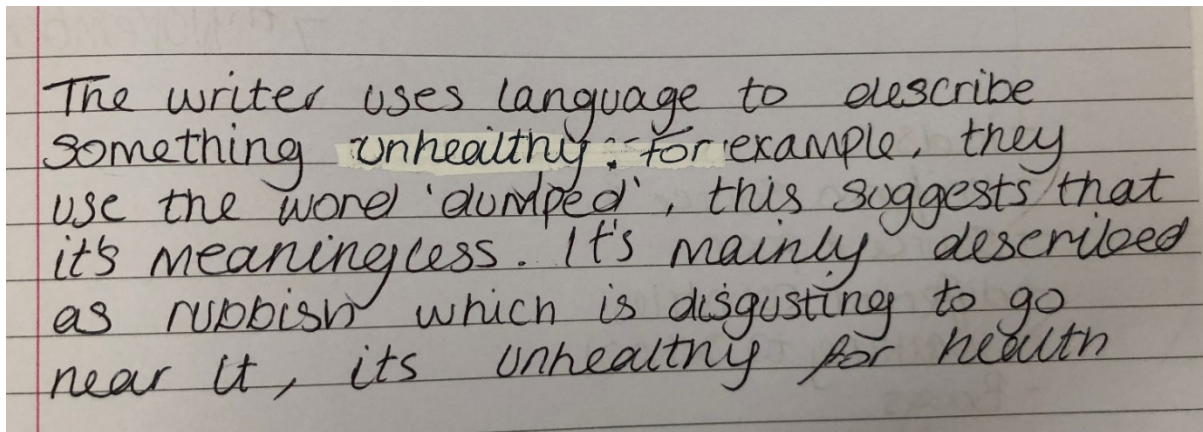 The writer uses language to describe
something unhealthy. for example, they
use the word 'dumped', this suggests that
it's meaningless. It's mainly described
as rubbish which is disgusting to go
near it, its unhealthy for health